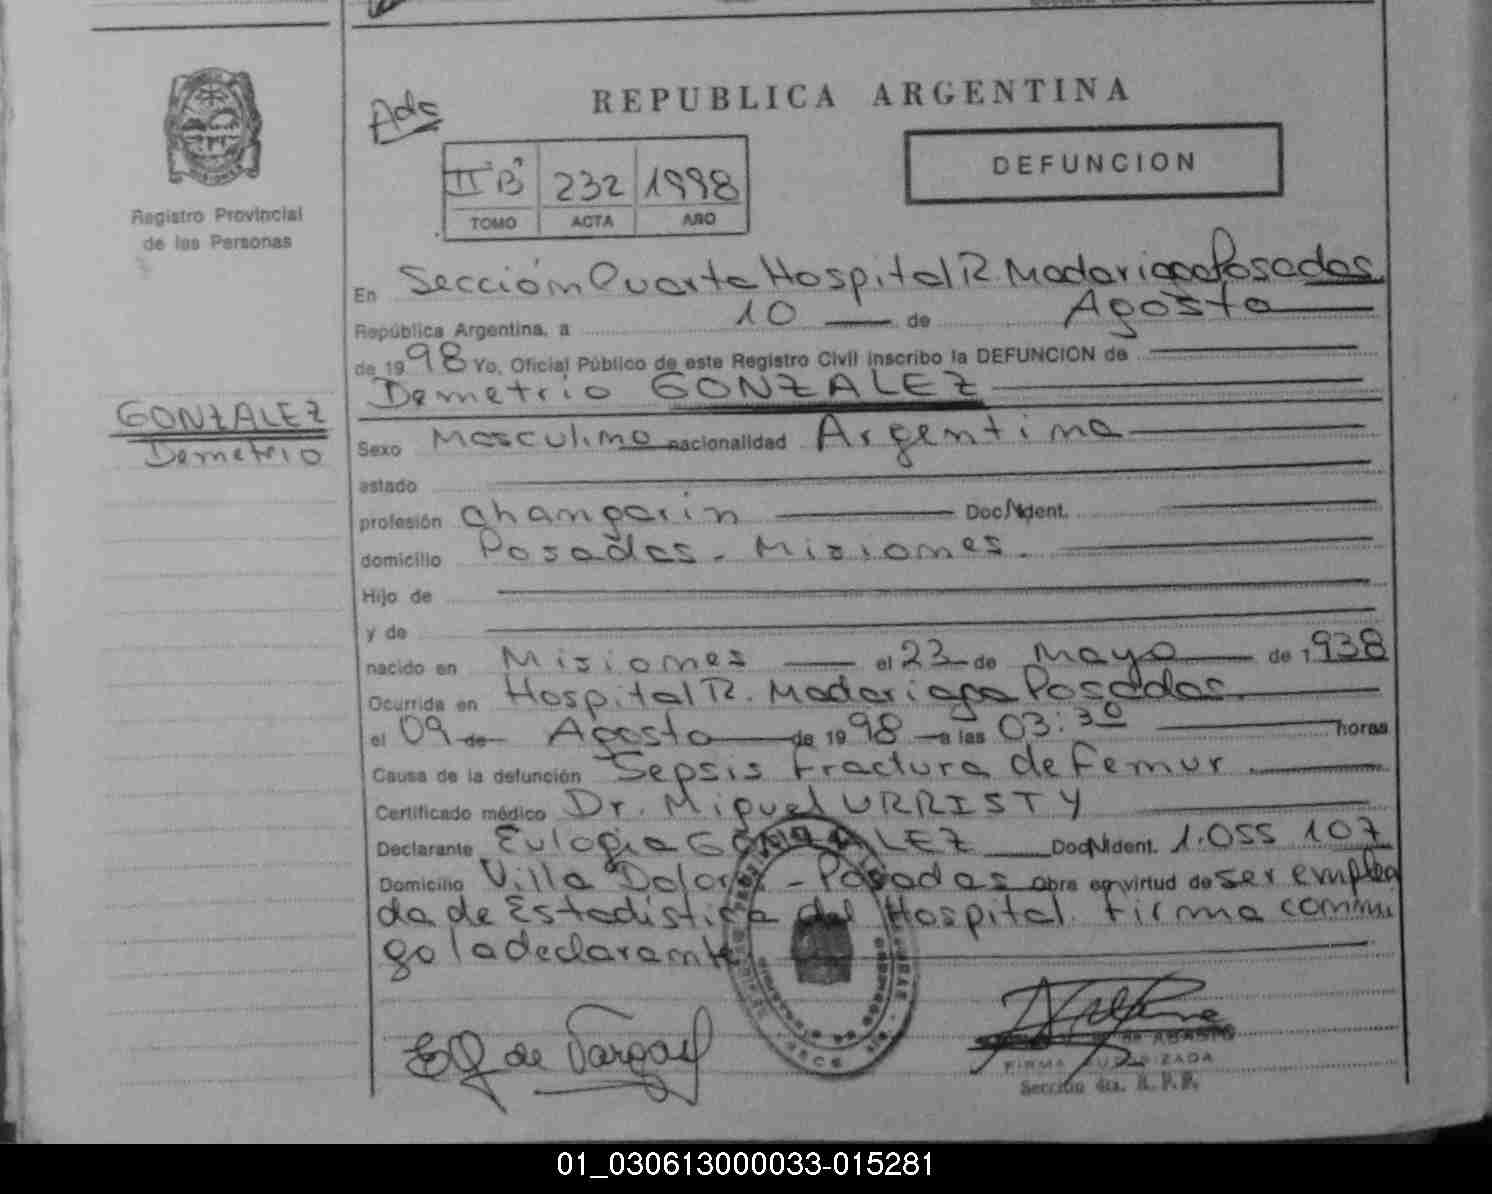 Registro Provincial
de las Personas
Adc
REPUBLICA ARGENTINA
DEFUNCION
II "B" 232 1998
TOMO ACTA AÑO
En Sección Cuarta Hospital R. Madariaga Posadas
República Argentina, a 10 de Agosto
de 1998 Yo, Oficial Público de este Registro Civil inscribo la DEFUNCION de
Demetrio GONZALEZ
GONZALEZ
Demetrio
Sexo Masculino nacionalidad Argentina
estado
profesión changarin Doc. Ident.
domicilio Posadas - Misiones.
Hijo de
y de
nacido en Misiones el 23 de Mayo de 1938
Ocurrida en Hospital R. Madariaga Posadas.
el 09 de Agosto de 1998 a las 03:30 horas
Causa de la defunción Sepsis Fractura de Femur
Certificado médico Dr. Miguel URRISTY
Declarante Eulogia GONZALEZ Doc. Ident. 1.055 107
Domicilio Villa Dolores - Posadas obra en virtud de ser emplea
da de Estadística del Hospital. Firma conmi
go la declarante
EG de Vargas
FIRMA AUTORIZADA
Sección 4ta. R. P. P.
01_030613000033-015281